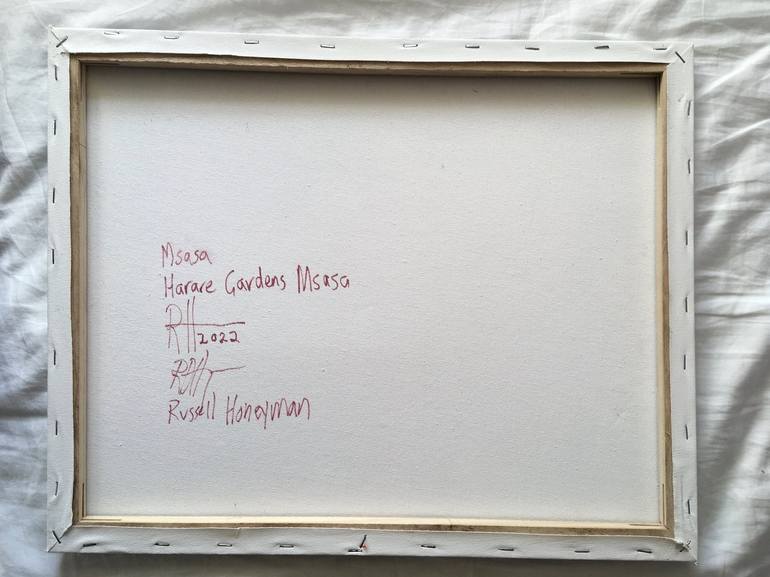 Msasa
Harare Gardens Msasa
RH 2022
Russell Honeyman